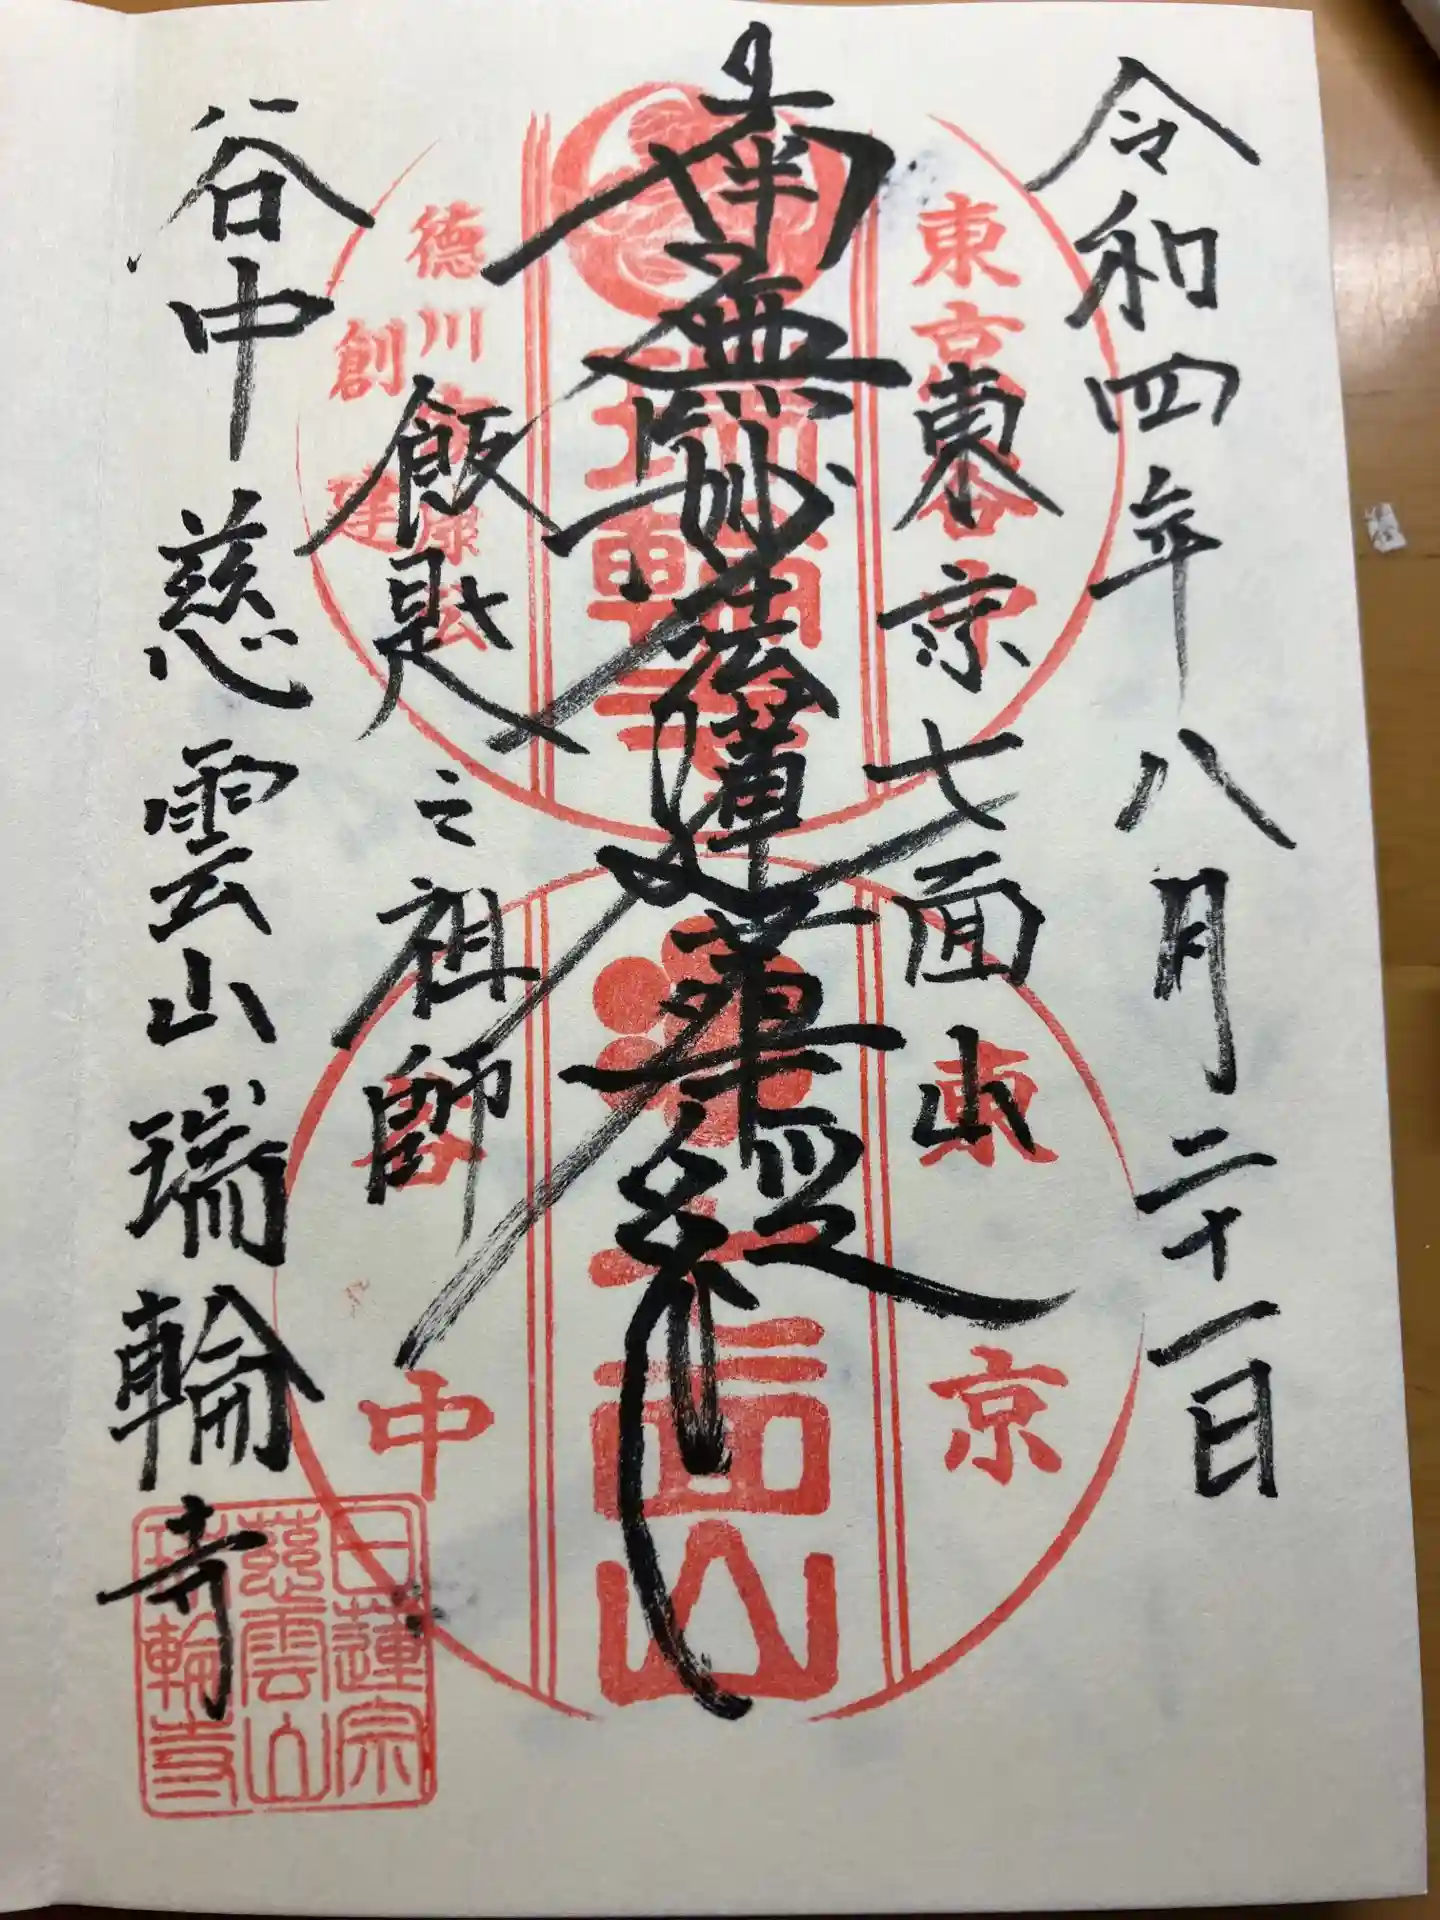 令和四年八月二十一日
東京七面山
南無妙法蓮華経
飯匙之祖師
谷中慈雲山瑞輪寺
東京谷中
瑞輪寺
徳川家康公
創建
東京
七面山
谷中
日蓮宗
慈雲山
瑞輪寺